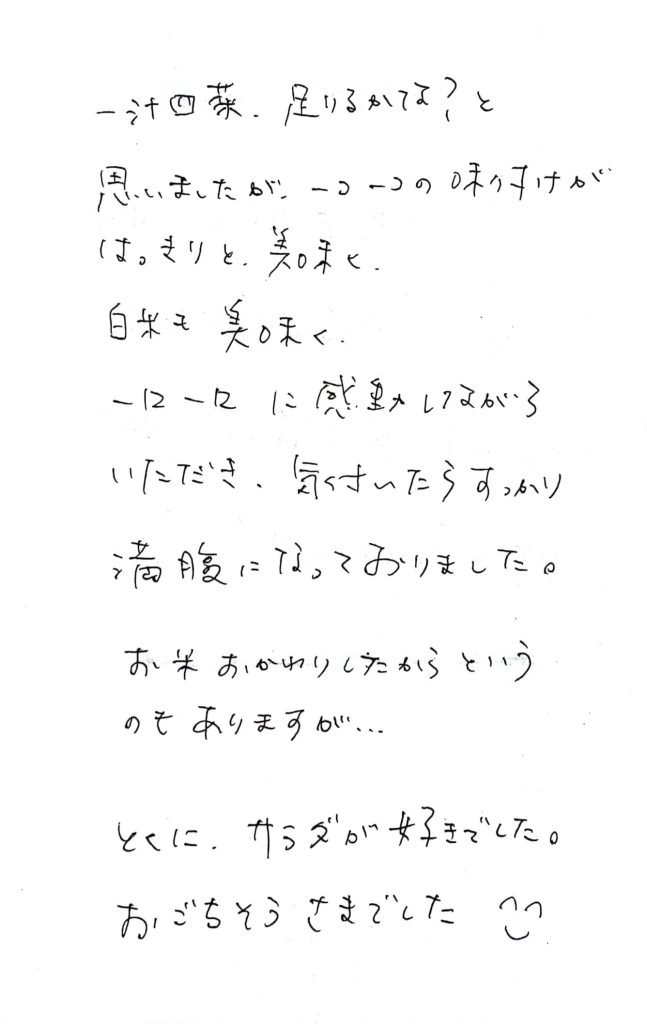 一汁四菜、足りるかな?と
思いましたが、一つ一つの味付けが
はっきりと、美味く、
白米も美味く、
一口一口に感動しながら
いただき、気付いたらすっかり
満腹になっておりました。
お米おかわりしたからという
のもありますが…
とくに、サラダが好きでした。
おごちそうさまでした